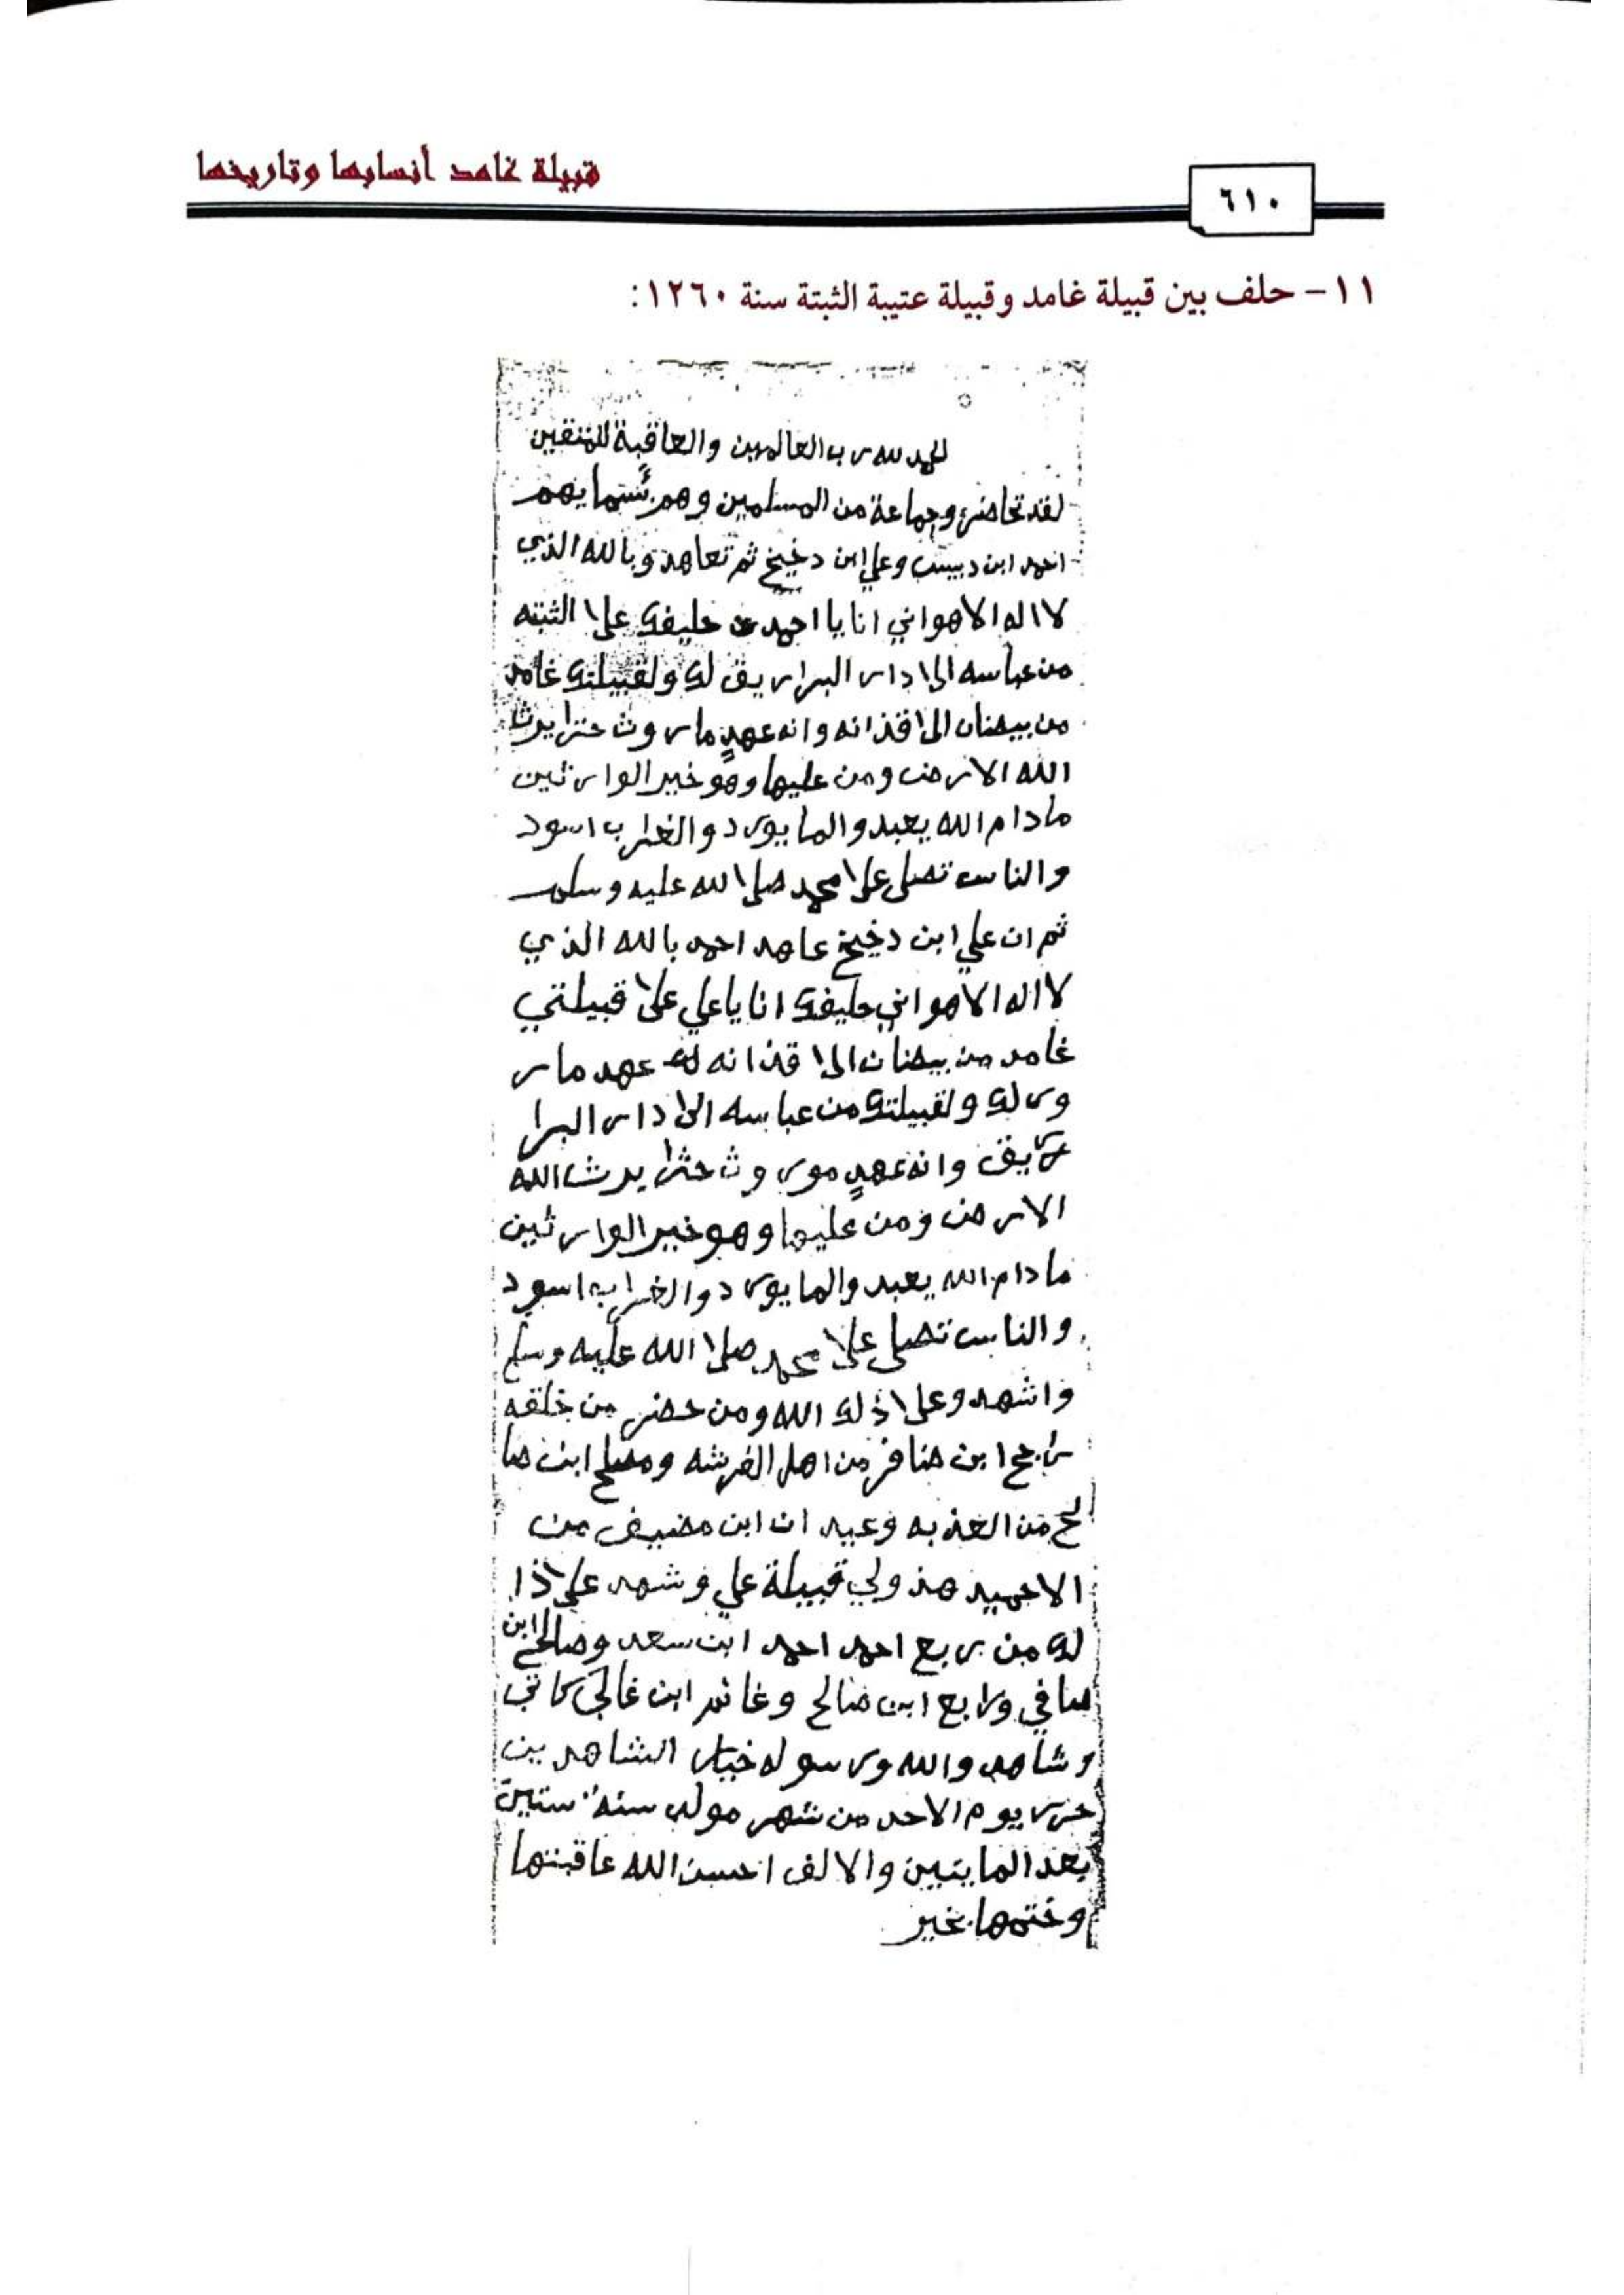 قبيلة غامد أنسابها وتاريخها
٦١٠
١١- حلف بين قبيلة غامد وقبيلة عتيبة الثبتة سنة ١٢٦٠:
الحمد لله رب العالمين والعاقبة للمتقين
لقد تحاضرو جماعة من المسلمين وهم
احمد ابن دبيس وعلي ابن دخيخ ثم تعاهدو بالله الذي
لا اله الا هو اني انا يا احمد حليفك علا الثبته
من عباسه الا دار البرا ريق لك ولقبيلتك غامد
من بيضان الا قذانه وانه عهدٍ ماروث حتا يرث
الله الارض ومن عليها وهو خير الوارثين
مادام الله يعبد والما يورد والغراب اسود
والناس تصلي علا محمد صلا الله عليه وسلم
ثم ان علي ابن دخيخ عاهد احمد بالله الذي
لا اله الا هو اني حليفك انا يا علي علا قبيلتي
غامد من بيضان الا قذانه لك عهد مار
ور لك ولقبيلتك من عباسه الا دار البرا
ريق وانه عهدٍ موروث حتا يرث الله
الارض ومن عليها وهو خير الوارثين
مادام الله يعبد والما يورد والغراب اسود
والناس تصلي علا محمد صلا الله عليه وسلم
واشهدو علا ذلك الله ومن حضر من خلقه
راجح ابن ضافر من اهل القرشه ومصلح ابن صا
لح من العذبه وعبيد ان ابن مضيف من
الاحميد هذولي قبيلة علي وشهد علا ذا
لك من ربع احمد احمد ابن سعد وصالح ابن
صافي ورابع ابن صالح وغانم ابن غالي كاتب
وشاهد والله ورسوله خيار الشاهدين
حرر يوم الاحد من شهر مولد سنه ستين
بعد المايتين والالف احسن الله عاقبتها
وختمها بخير